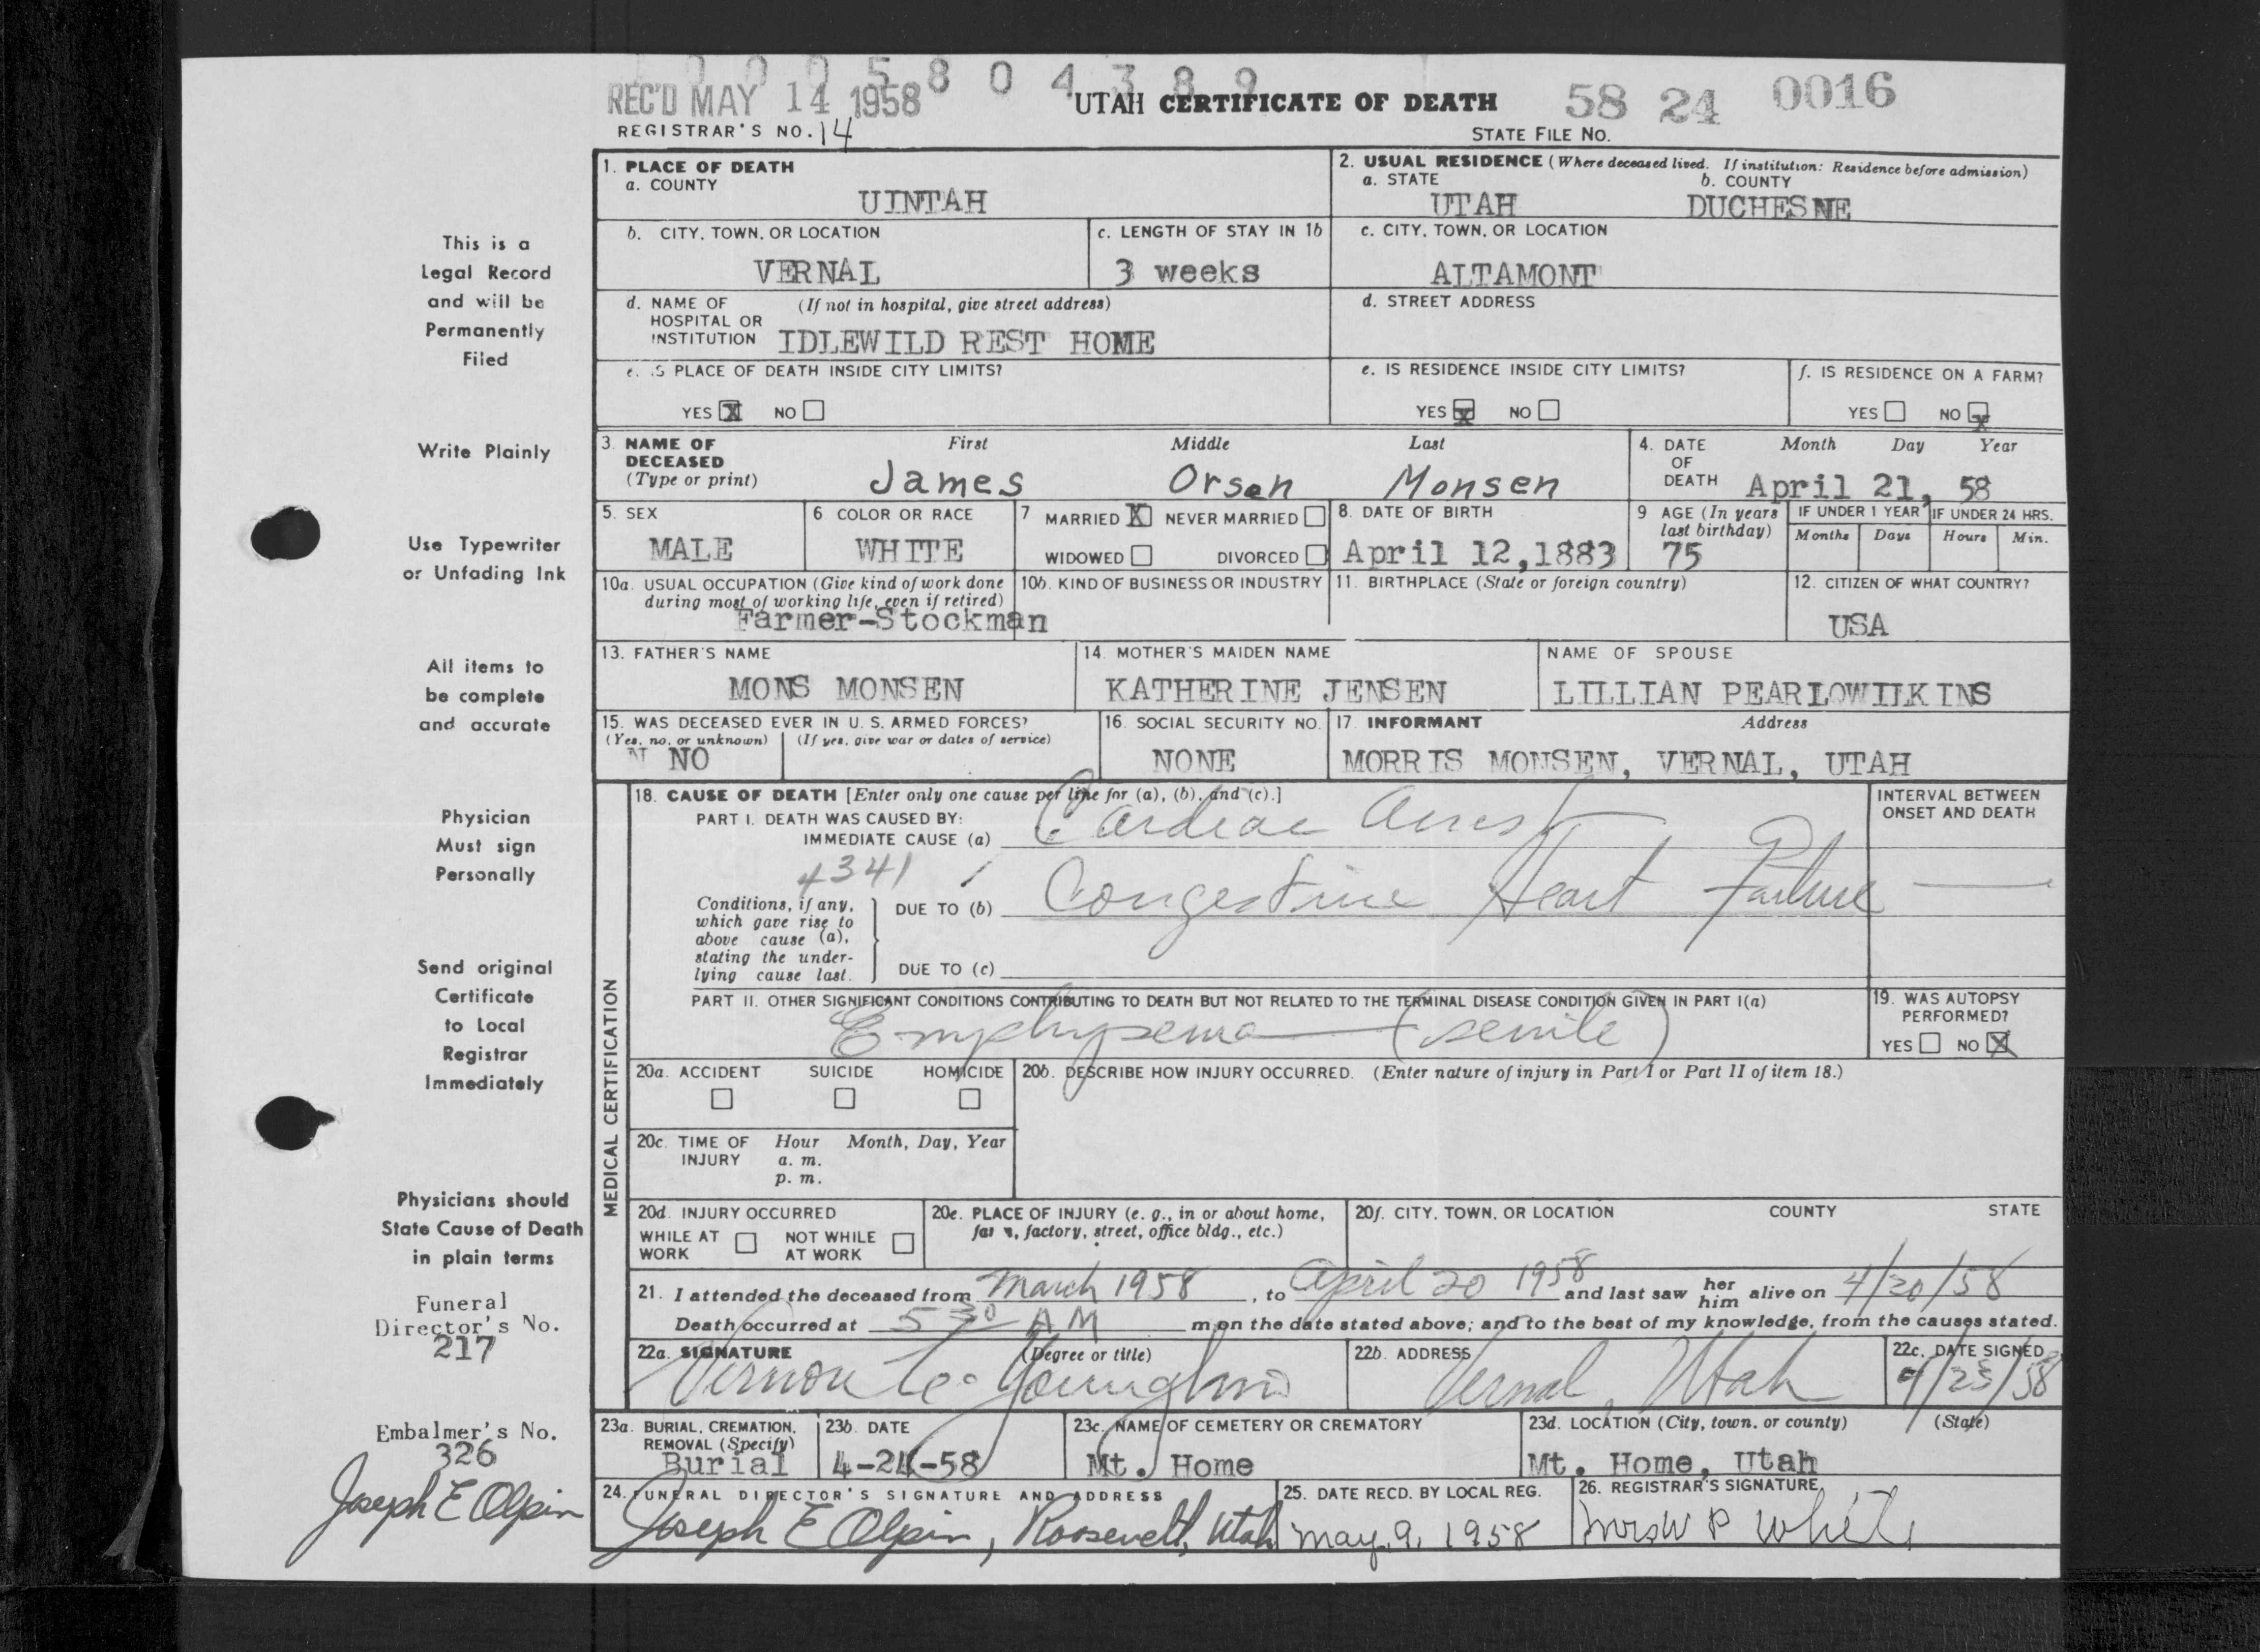 0 0 0 5 8 0 4 3 8 9
REC'D MAY 14 1958 UTAH CERTIFICATE OF DEATH 58 24 0016
REGISTRAR'S NO. 14 STATE FILE NO.
This is a
Legal Record
and will be
Permanently
Filed
Write Plainly
Use Typewriter
or Unfading Ink
All items to
be complete
and accurate
Physician
Must sign
Personally
Send original
Certificate
to Local
Registrar
Immediately
Physicians should
State Cause of Death
in plain terms
Funeral
Director's No.
217
Embalmer's No.
326
Joseph E Olpin
1. PLACE OF DEATH
a. COUNTY
UINTAH
2. USUAL RESIDENCE (Where deceased lived. If institution: Residence before admission)
a. STATE b. COUNTY
UTAH DUCHESNE
b. CITY, TOWN, OR LOCATION
VERNAL
c. LENGTH OF STAY IN 1b
3 weeks
c. CITY, TOWN, OR LOCATION
ALTAMONT
d. NAME OF (If not in hospital, give street address)
HOSPITAL OR
INSTITUTION IDLEWILD REST HOME
d. STREET ADDRESS
e. IS PLACE OF DEATH INSIDE CITY LIMITS?
YES X NO
e. IS RESIDENCE INSIDE CITY LIMITS?
YES X NO
f. IS RESIDENCE ON A FARM?
YES NO X
3. NAME OF First Middle Last
DECEASED
(Type or print) James Orsen Monsen
4. DATE Month Day Year
OF
DEATH April 21, 58
5. SEX
MALE
6 COLOR OR RACE
WHITE
7 MARRIED X NEVER MARRIED
WIDOWED DIVORCED
8. DATE OF BIRTH
April 12,1883
9 AGE (In years
last birthday)
75
IF UNDER 1 YEAR IF UNDER 24 HRS.
Months Days Hours Min.
10a. USUAL OCCUPATION (Give kind of work done
during most of working life, even if retired)
Farmer-Stockman
10b. KIND OF BUSINESS OR INDUSTRY
11. BIRTHPLACE (State or foreign country)
12. CITIZEN OF WHAT COUNTRY?
USA
13. FATHER'S NAME
MONS MONSEN
14. MOTHER'S MAIDEN NAME
KATHERINE JENSEN
NAME OF SPOUSE
LILLIAN PEARLOWILKINS
15. WAS DECEASED EVER IN U. S. ARMED FORCES?
(Yes, no, or unknown) (If yes, give war or dates of service)
N NO
16. SOCIAL SECURITY NO.
NONE
17. INFORMANT Address
MORRIS MONSEN, VERNAL, UTAH
MEDICAL CERTIFICATION
18. CAUSE OF DEATH [Enter only one cause per line for (a), (b), and (c).]
PART I. DEATH WAS CAUSED BY:
IMMEDIATE CAUSE (a) Cardiac Arrest
4341
Conditions, if any,
which gave rise to
above cause (a),
stating the under-
lying cause last.
DUE TO (b) Congestive Heart Failure
DUE TO (c)
INTERVAL BETWEEN
ONSET AND DEATH
PART II. OTHER SIGNIFICANT CONDITIONS CONTRIBUTING TO DEATH BUT NOT RELATED TO THE TERMINAL DISEASE CONDITION GIVEN IN PART I(a)
Emphysema (senile)
19. WAS AUTOPSY
PERFORMED?
YES NO X
20a. ACCIDENT SUICIDE HOMICIDE
20b. DESCRIBE HOW INJURY OCCURRED. (Enter nature of injury in Part I or Part II of item 18.)
20c. TIME OF Hour Month, Day, Year
INJURY a. m.
p. m.
20d. INJURY OCCURRED
WHILE AT NOT WHILE
WORK AT WORK
20e. PLACE OF INJURY (e. g., in or about home,
farm, factory, street, office bldg., etc.)
20f. CITY, TOWN, OR LOCATION COUNTY STATE
21. I attended the deceased from March 1958, to April 20 1958 and last saw her him alive on 4/20/58
Death occurred at 5 30 AM m on the date stated above; and to the best of my knowledge, from the causes stated.
22a. SIGNATURE (Degree or title)
Vernon
22b. ADDRESS
Vernal, Utah
22c. DATE SIGNED
4/25/58
23a. BURIAL, CREMATION,
REMOVAL (Specify)
Burial
23b. DATE
4-24-58
23c. NAME OF CEMETERY OR CREMATORY
Mt. Home
23d. LOCATION (City, town, or county) (State)
Mt. Home, Utah
24. FUNERAL DIRECTOR'S SIGNATURE AND ADDRESS
Joseph E Olpin, Roosevelt, Utah
25. DATE RECD. BY LOCAL REG.
May, 9, 1958
26. REGISTRAR'S SIGNATURE
Mrs W P White